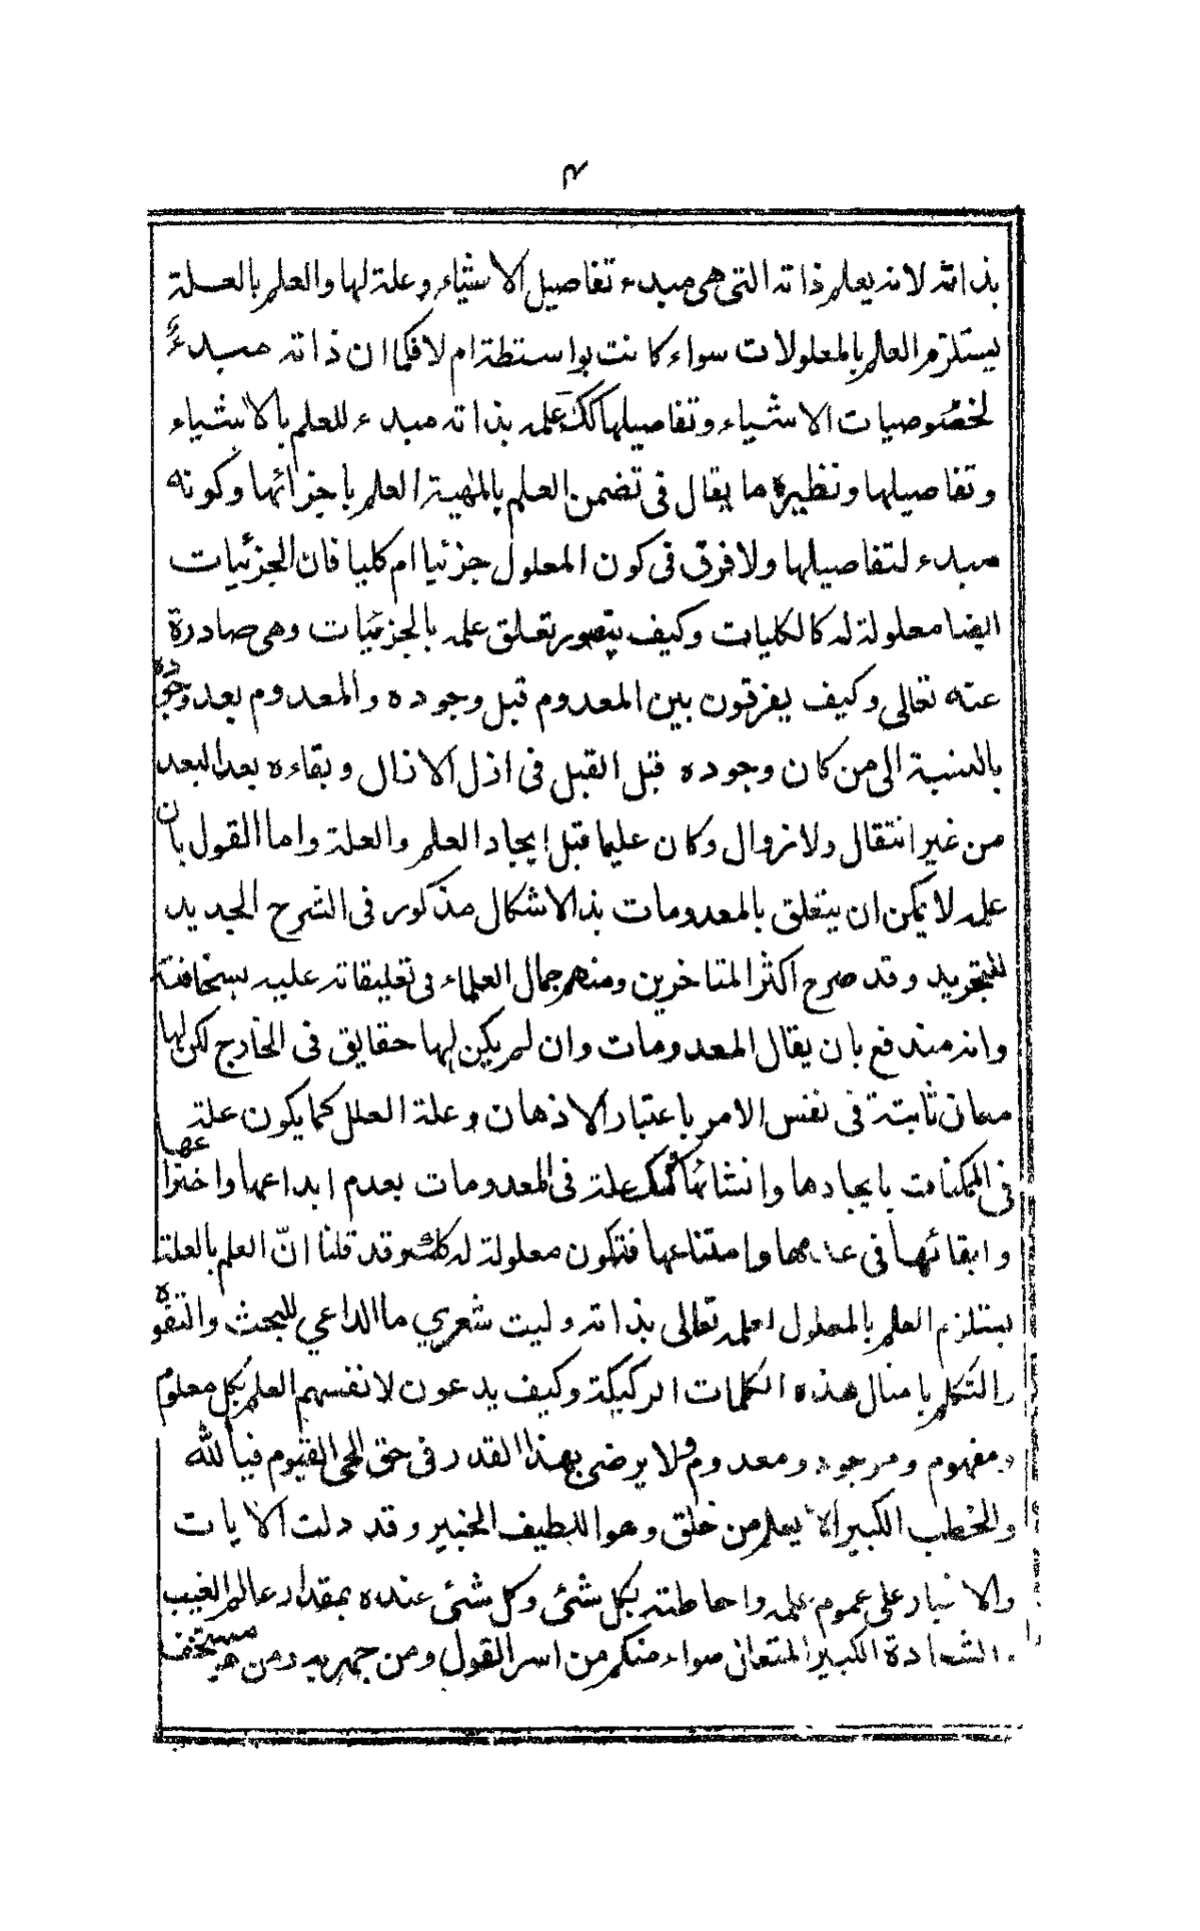 ٣
بذاته لانه يعلم ذاته التى هى مبدء تفاصيل الاشياء وعلة لها والعلم بالعلة
يستلزم العلم بالمعلولات سواء كانت بواسطة ام لا فكما ان ذاته مبدء
لخصوصيات الاشياء وتفاصيلها كك علمه بذاته مبدء للعلم بالاشياء
وتفاصيلها ونظيره ما يقال فى تضمن العلم بالمهية العلم باجزائها وكونه
مبدء لتفاصيلها ولا فرق فى كون المعلول جزئيا ام كليا فان الجزئيات
ايضا معلولة له كالكليات وكيف يتصور تعلق علمه بالجزئيات وهى صادرة
عنه تعالى وكيف يفرقون بين المعدوم قبل وجوده والمعدوم بعد وجوده
بالنسبة الى من كان وجوده قبل القبل فى ازل الازال وبقاءه بعد البعد
من غير انتقال ولا زوال وكان عليما قبل ايجاد العلم والعلة واما القول بان
علمه لا يمكن ان يتعلق بالمعدومات بذا الاشكال مذكور فى الشرح الجديد
للتجريد وقد صرح اكثر المتاخرين ومنهم جمال العلماء فى تعليقاته عليه بسخافته
وانه مندفع بان يقال المعدومات وان لم يكن لها حقايق فى الخارج لكن لها
معان ثابتة فى نفس الامر باعتبار الاذهان وعلة العلل كما يكون علة
فى الممكنات بايجادها وانشائها كك علة فى المعدومات بعدم ابداعها واختراعها
وابقائها فى عدمها وامتناعها فتكون معلولة له كك وقد قلنا انّ العلم بالعلة
يستلزم العلم بالمعلول لعلمه تعالى بذاته وليت شعري ما الداعي للبحث والتفوه
والتكلم بامثال هذه الكلمات الركيكة وكيف يدعون لانفسهم العلم بكل معلوم
ومفهوم وموجود ومعدوم ولا يرضى بهذا القدر فى حق الحى القيوم فيا لله
والخطب الكبير الا يعلم من خلق وهو اللطيف الخبير وقد دلت الايات
والاخبار على عموم علمه واحاطته بكل شئى وكل شئى عنده بمقدار عالم الغيب
والشهادة الكبير المتعال سواء منكم من اسر القول ومن جهر به ومن هو مستخف